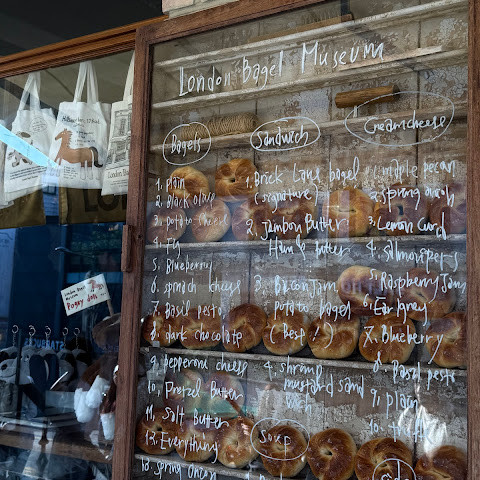 London Bagel Museum
Bagels
1. plain
2. Black olive
3. potato-cheese
4. Fig
5. Blueberry
6. spinach cheese
7. Basil pesto
8. dark chocolate
9. pepperoni cheese
10. Pretzel Butter
11. Salt Butter
12. Everything
13. Spring onion
Sandwich
1. Brick Lane bagel
(signature)
2. Jambon Butter
Ham & butter
3. Bacon Jam
potato Bagel
(Best!)
4. shrimp
mustard sand
wich
Soup
Creamcheese
1. maple pecan
2. spring onion
3. Lemon Curd
4. salmon
5. Raspberry Jam
6. Earl grey
7. Blueberry
8. Basil pesto
9. plain
10.
London Bagel
Museum